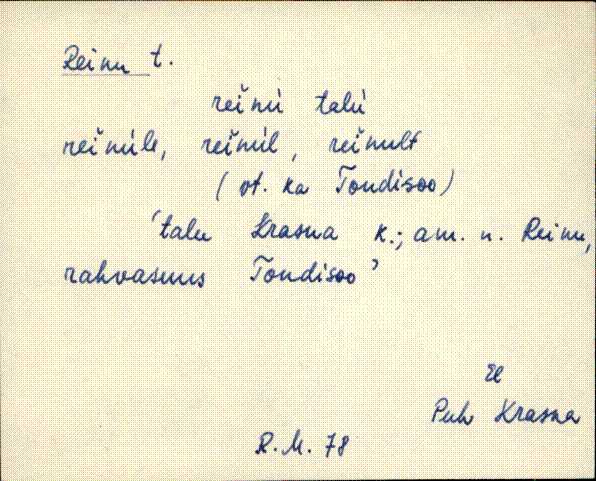 Reinu t.
reǐnù talù
reǐnùle, reǐnùl, reǐnult
(vt. ka Tondisoo)
'talu Krasna k.; am. n. Reinu,
rahvasuus Tondisoo'
El
Puh Krasna
R.M. 78